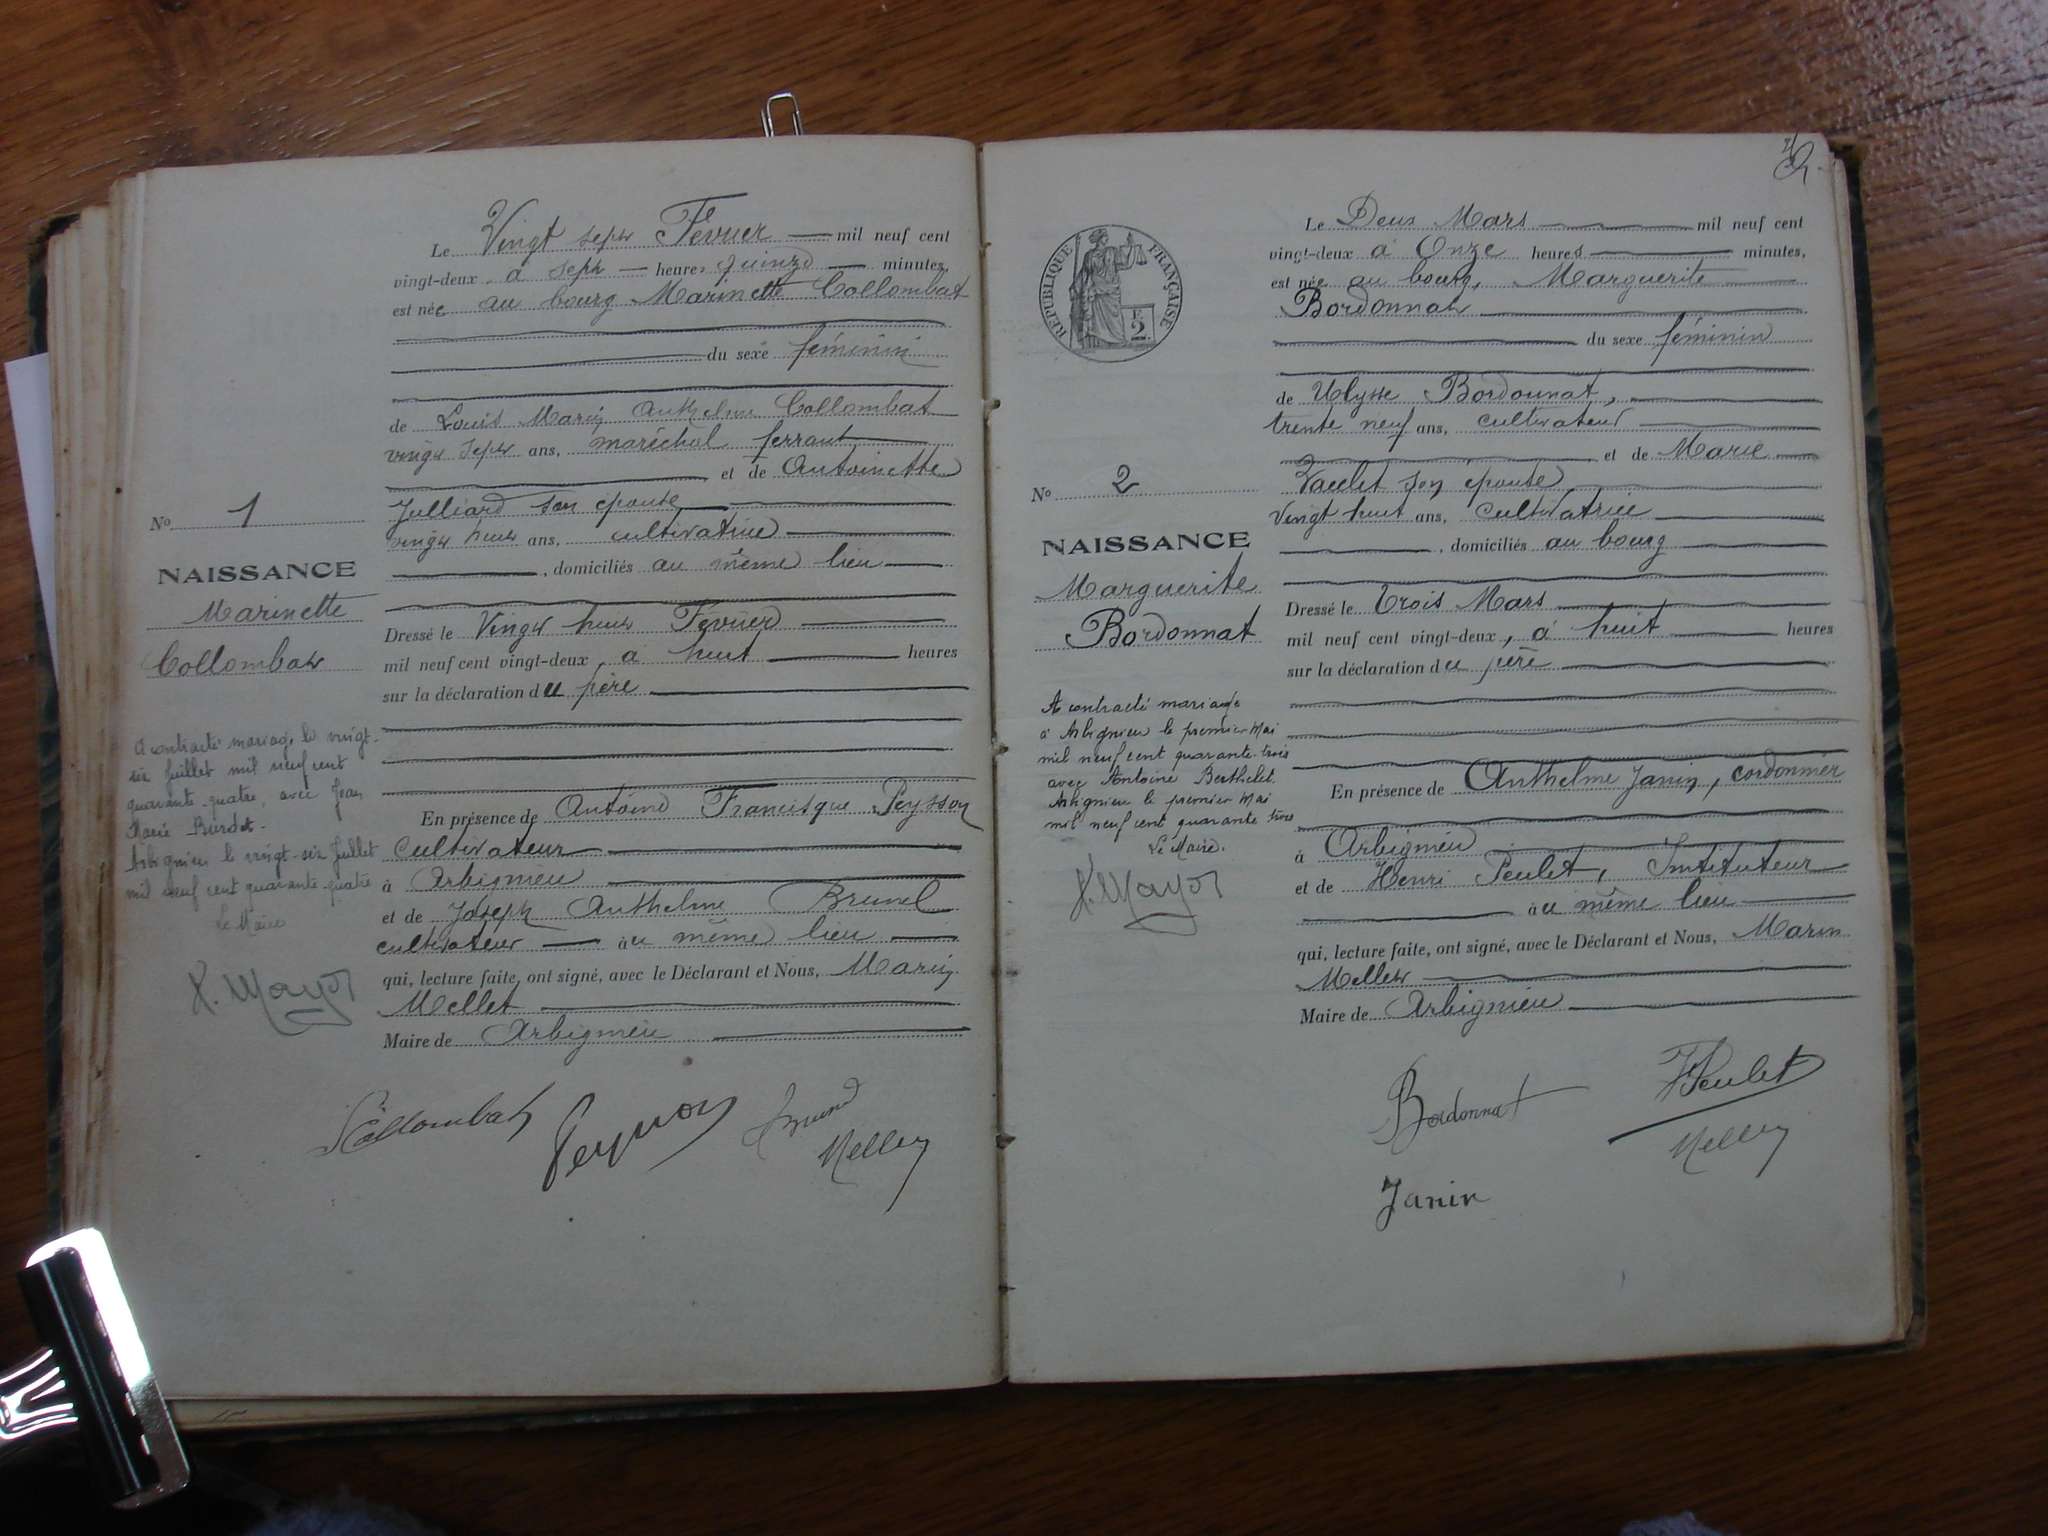 Le Vingt sept Février mil neuf cent
vingt-deux, à sept heures quinze minutes,
est née au bourg Marinette Collombat
du sexe féminin
de Louis Marin Anthelme Collombat
vingt sept ans, maréchal ferrant
et de Antoinette
Julliard son épouse
vingt huit ans, cultivatrice
, domiciliés au même lieu
Dressé le Vingt huit Février
mil neuf cent vingt-deux, à huit heures
sur la déclaration du père
En présence de Antoine Francisque Peysson
Cultivateur
à Arbignieu
et de Joseph Anthelme Brunel
cultivateur au même lieu
qui, lecture faite, ont signé, avec le Déclarant et Nous, Marin
Mellet
Maire de Arbignieu
Collombat Peysson Brunel
Mellet
No 1
NAISSANCE
Marinette
Collombat
A contracté mariage le vingt-
six Juillet mil neuf cent
quarante-quatre, avec Jean
Marie Burdet.
Arbignieu le vingt-six Juillet
mil neuf cent quarante-quatre
Le Maire
Mayot
2
Le Deux Mars mil neuf cent
vingt-deux à Onze heures minutes,
est née au bourg, Marguerite
Bordonnat
du sexe féminin
de Ulysse Bordonnat,
trente neuf ans, cultivateur
et de Marie
Vacelet son épouse
Vingt huit ans, cultivatrice
, domiciliés au bourg
Dressé le Trois Mars
mil neuf cent vingt-deux, à huit heures
sur la déclaration du père
En présence de Anthelme Janin, cordonnier
à Arbignieu
et de Henri Peulet, Instituteur
au même lieu
qui, lecture faite, ont signé, avec le Déclarant et Nous, Marin
Mellet
Maire de Arbignieu
Bordonnat HPeulet
Mellet
Janin
RÉPUBLIQUE FRANÇAISE
2
No 2
NAISSANCE
Marguerite
Bordonnat
A contracté mariage
à Arbignieu le premier Mai
mil neuf cent quarante-trois
avec Antoine Berthelet.
Arbignieu le premier Mai
mil neuf cent quarante trois
Le Maire.
Mayot